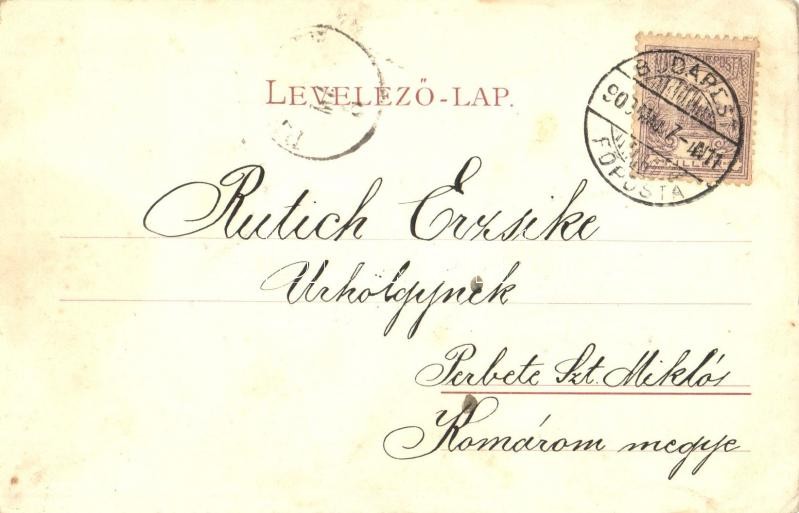 LEVELEZŐ-LAP.
BUDAPEST
FŐPOSTA
Rutich Erzsike
Urhölgynek
Perbete Szt. Miklós
Komárom megye